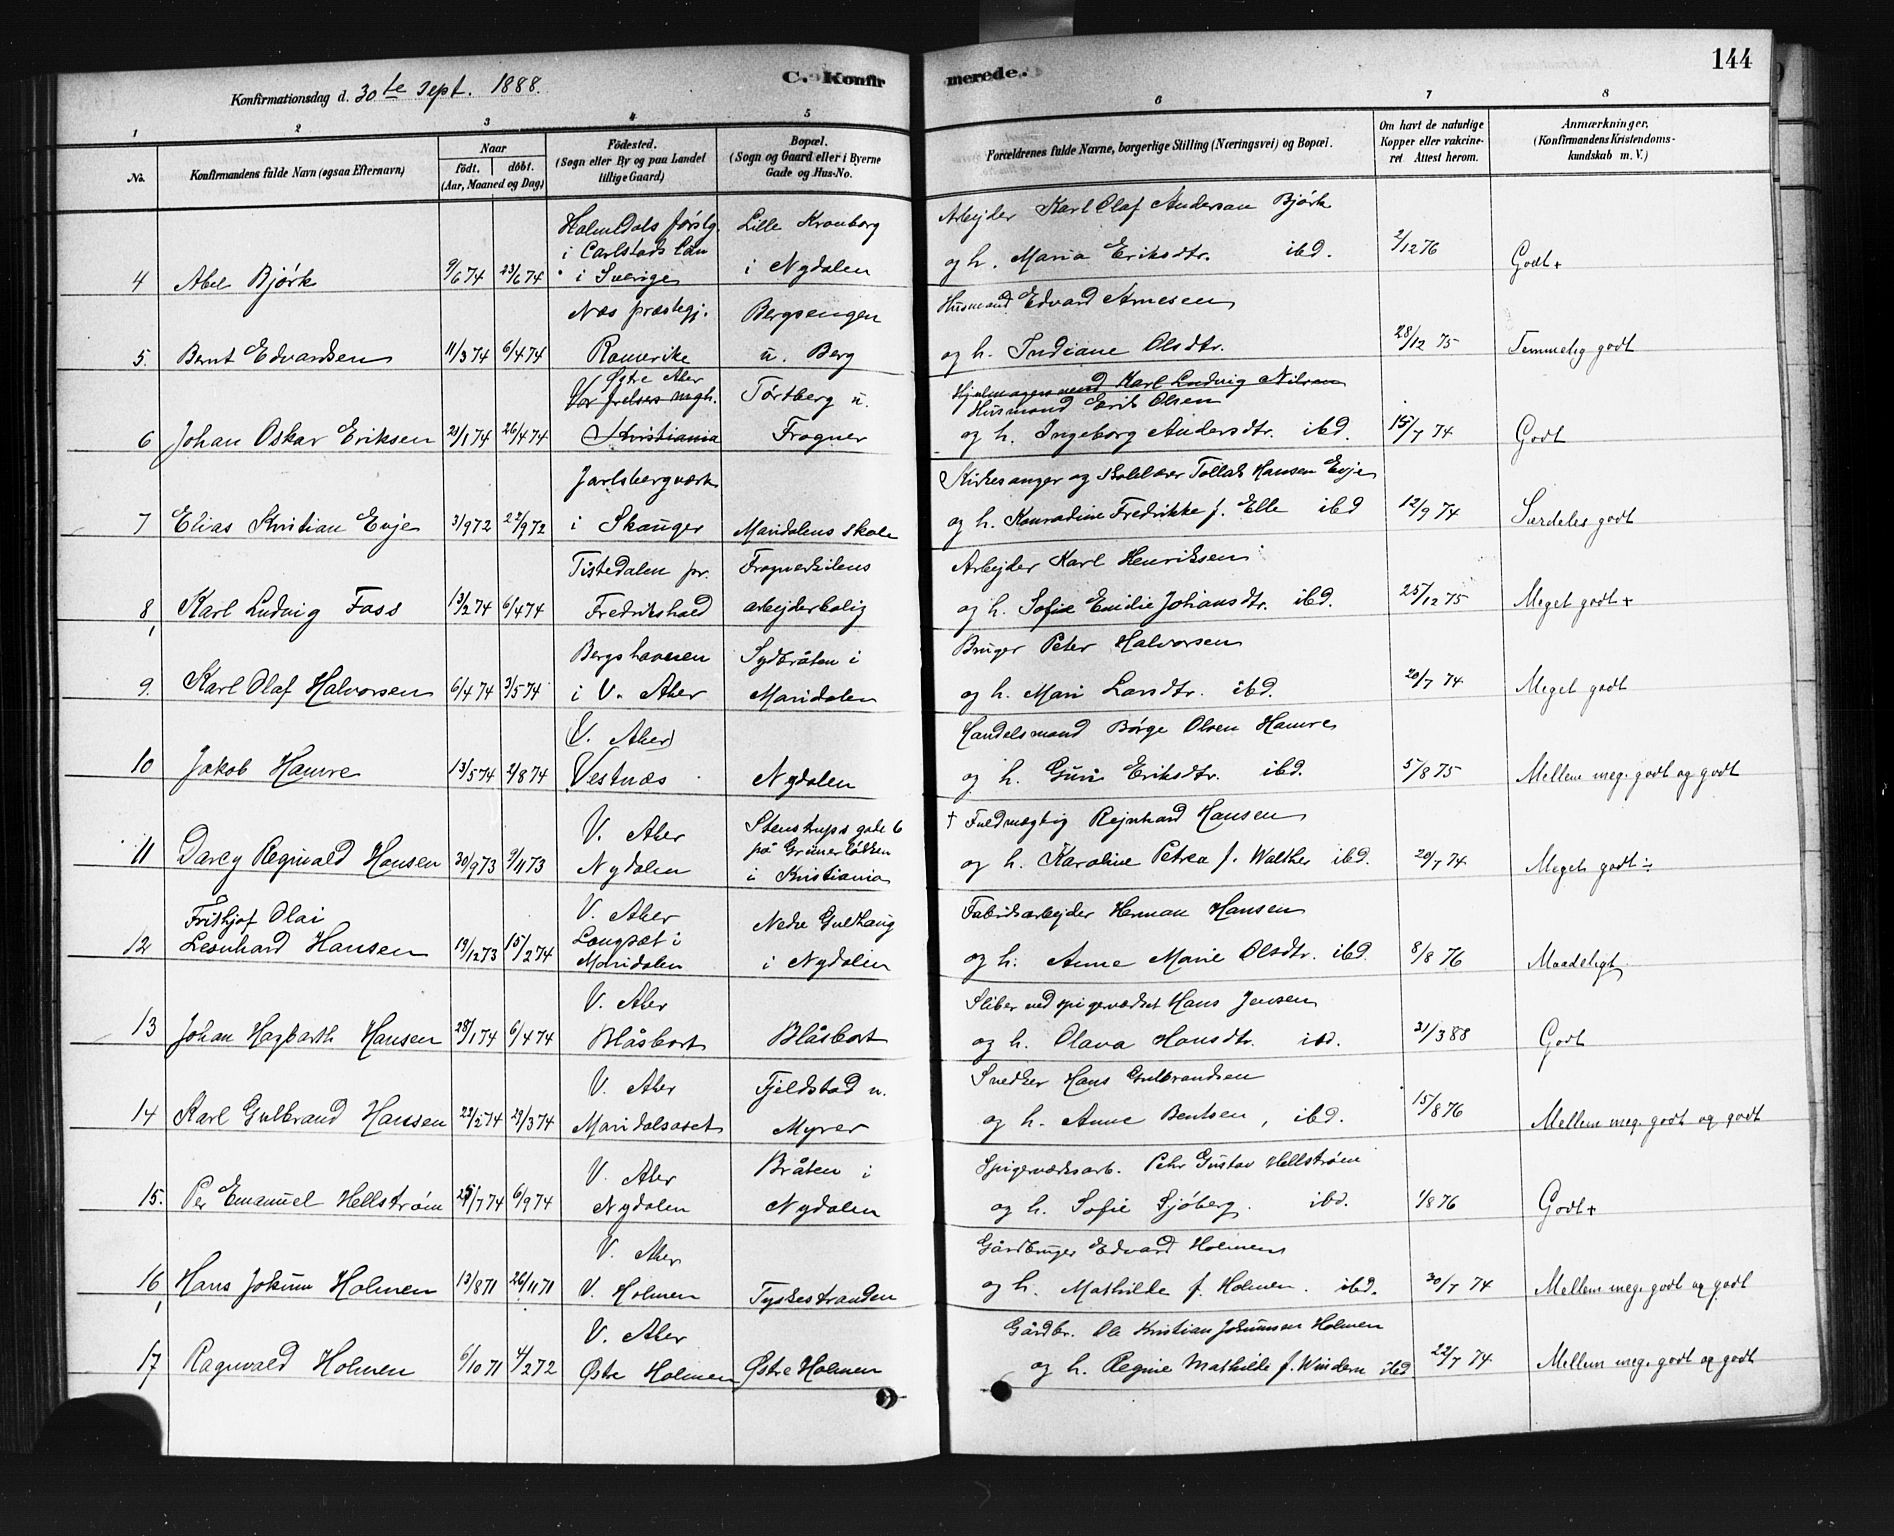 144
Konfirmationsdag d. 30te Sept. 1888.
C. Konfirmerede.
1 2 3 4 5 6 7 8
No.
Konfirmandens fulde Navn (ogsaa Efternavn)
Naar
født. døbt.
(Aar, Maaned og Dag)
Fødested.
(Sogn eller By og paa Landet
tillige Gaard)
Bopæl.
(Sogn og Gaard eller i Byerne
Gade og Hus-No.
Forældrenes fulde Navne, borgerlige Stilling (Næringsvei) og Bopæl.
Om havt de naturlige
Kopper eller vakcine-
ret Attest herom.
Anmærkninger.
(Konfirmandens Kristendoms-
kundskab m. V.)
Lille Kronborg Arbejder Karl Olaf Anderson Bjørk
i Carlstads Län
4 Abel Bjørk 9/6 74 23/6 74 i Sverige i Nydalen og h. Maria Eriksdtr. ibd. 2/12 76 Godt+
Næs præstegj. Bergsengen Husmand Edvard Arnesen
5. Bernt Edvardsen 11/3 74 6/4 74 Romerike u. Berg og h. Indiane Olsdtr. 28/12 75 Temmelig godt
Østre Aker Hjulmagersvend Karl Ludvig Nilsen
Vor frelsers mgh. Tørtberg u. Husmand Erik Olsen
6 Johan Oskar Eriksen 21/1 74 26/4 74 Kristiania Frogner og h. Ingeborg Andersdtr. ibd. 15/7 74 Godt
Jarlsbergværk Kirkesanger og Skolelærer Tollak Hansen Evje
7 Elias Kristian Evje 3/9 72 22/9 72 i Skauger Maridalens skole og h. Konradine Fredrikke f. Elle ibd 12/9 74 Særdeles godt
Tistedalen pr. Frognerkilens Arbejder Karl Henriksen
8 Karl Ludvig Foss 13/2 74 6/4 74 Fredrikshald arbejderbolig og h. Sofie Emilie Johansdtr. ibd. 25/12 75 Meget godt+
Bergshavnen Sydbråten i Bruger Peter Halvorsen
9. Karl Olaf Halvorsen 6/4 74 3/5 74 i V. Aker Maridalen og h. Mari Larsdtr. ibd. 20/7 74 Meget godt
V. Aker Handelsmand Børge Olsen Hamre
10 Jakob Hamre 13/5 74 2/8 74 Vestnæs Nydalen og h. Guri Eriksdtr. ibd. 5/8 75 Mellem meg. godt og godt
V. Aker Stenstrups gade 6 † Fuldmægtig Rejnhard Hansen
på Grünerløkken
11 Darcy Reginald Hansen 30/9 73 9/11 73 Nydalen i Kristiania og h. Karoline Petrea f. Walther ibd. 20/7 74 Meget godt÷
Frithjof Olai V. Aker Nedre Gulhaug Fabrikarbejder Herman Hansen
12 Leonhard Hansen 19/12 73 15/2 74 Langsæt i Maridalen i Nydalen og h. Anne Marie Olsdtr. ibd. 8/8 76 Maadeligt
V. Aker Sliber ved spigerværket Hans Jensen
13 Johan Hagbarth Hansen 28/1 74 6/4 74 Blåsbort Blåsbort og h. Olava Hansdtr. ibd. 21/3 88 Godt
V. Aker Fjeldstad u. Snedker Hans Gulbrandsen
14 Karl Gulbrand Hansen 22/2 74 29/3 74 Maridalsoset Myrer og h. Anne Bentsen, ibd. 15/8 76 Mellem meg. godt og godt
V. Aker Bråten i Spigerværksarb. Pehr Gustav Hellstrøm
15. Per Emanuel Hellstrøm 7 74 6/9 74 Nydalen Nydalen og h. Sofie Sjøberg. ibd. 1/8 76 Godt+
V. Aker Gårdbruger Edvard Holmen
16 Hans Jokum Holmen 13/8 71 26/11 71 V. Holmen Tyskestranden og h. Mathilde f. Holmen. ibd. 30/7 74 Mellem meg. godt og godt
V. Aker Gårdbr. Ole Kristian Jokumsen Holmen
17 Ragnvald Holmen 6/10 71 4/2 72 Østre Holmen Østre Holmen og h. Regine Mathilde f. Windern ibd. 22/7 74 Mellem meg. godt og godt